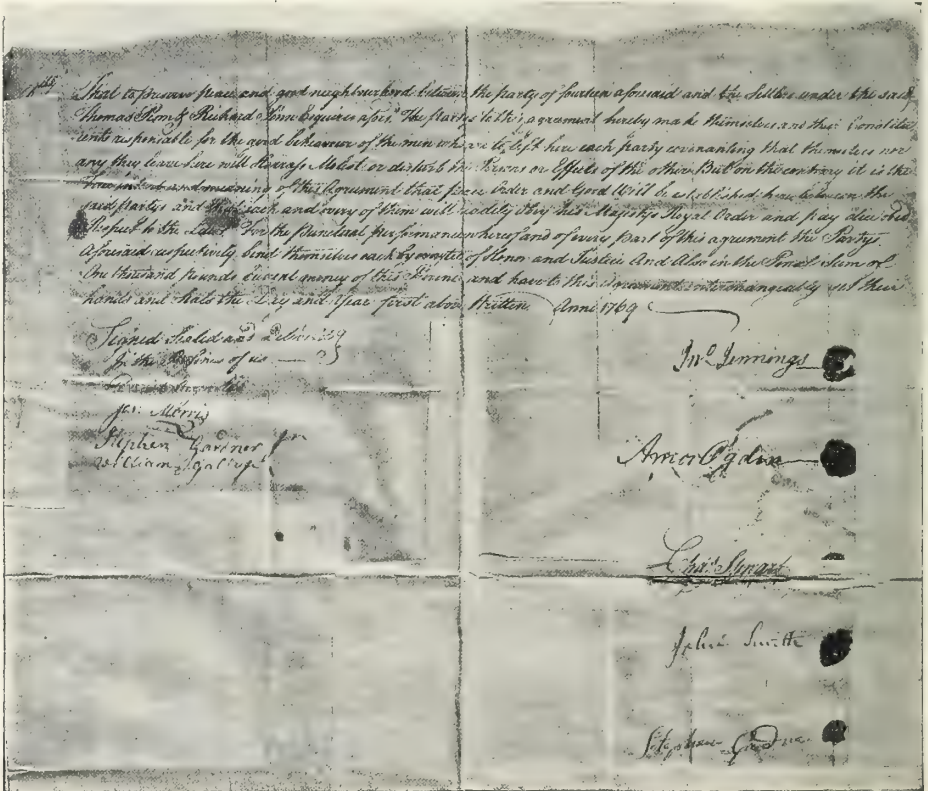 That to preserve peace and good neighbourhood between the party of fourteen aforesaid and the Settlers under the said
Thomas Penn & Richard Penn Esquires afores. The partys to this agreement hereby make themselves and their Constitu
ents responsible for the good behaviour of the men who are to left here each party covenanting that themselves nor
any they leave here will Harrass Molest or disturb the Persons or Effects of the other But on the contrary it is the
true intent and meaning of this Agreement that peace Order and Good Will be established here between the
said partys and that each and every of them will readily obey his Majestys Royal Order and pay due
Respect to the Laws For the Punctual performance whereof and of every part of this agreement the Partys
Aforesaid respectively bind themselves each by of Honor and Justice And Also in the Penal Sum of
One thousand pounds money of this and have to this Agreement interchangeably set their
hands and Seals the Day and Year first above Written Anno 1769
Signed Sealed and Delivered
In the Presence of us
Jos: Morris
Stephen Gardner
William Gallup
Jno. Jennings
Amos Ogden
Chas. Stewart
John Smith
Stephen Gardner